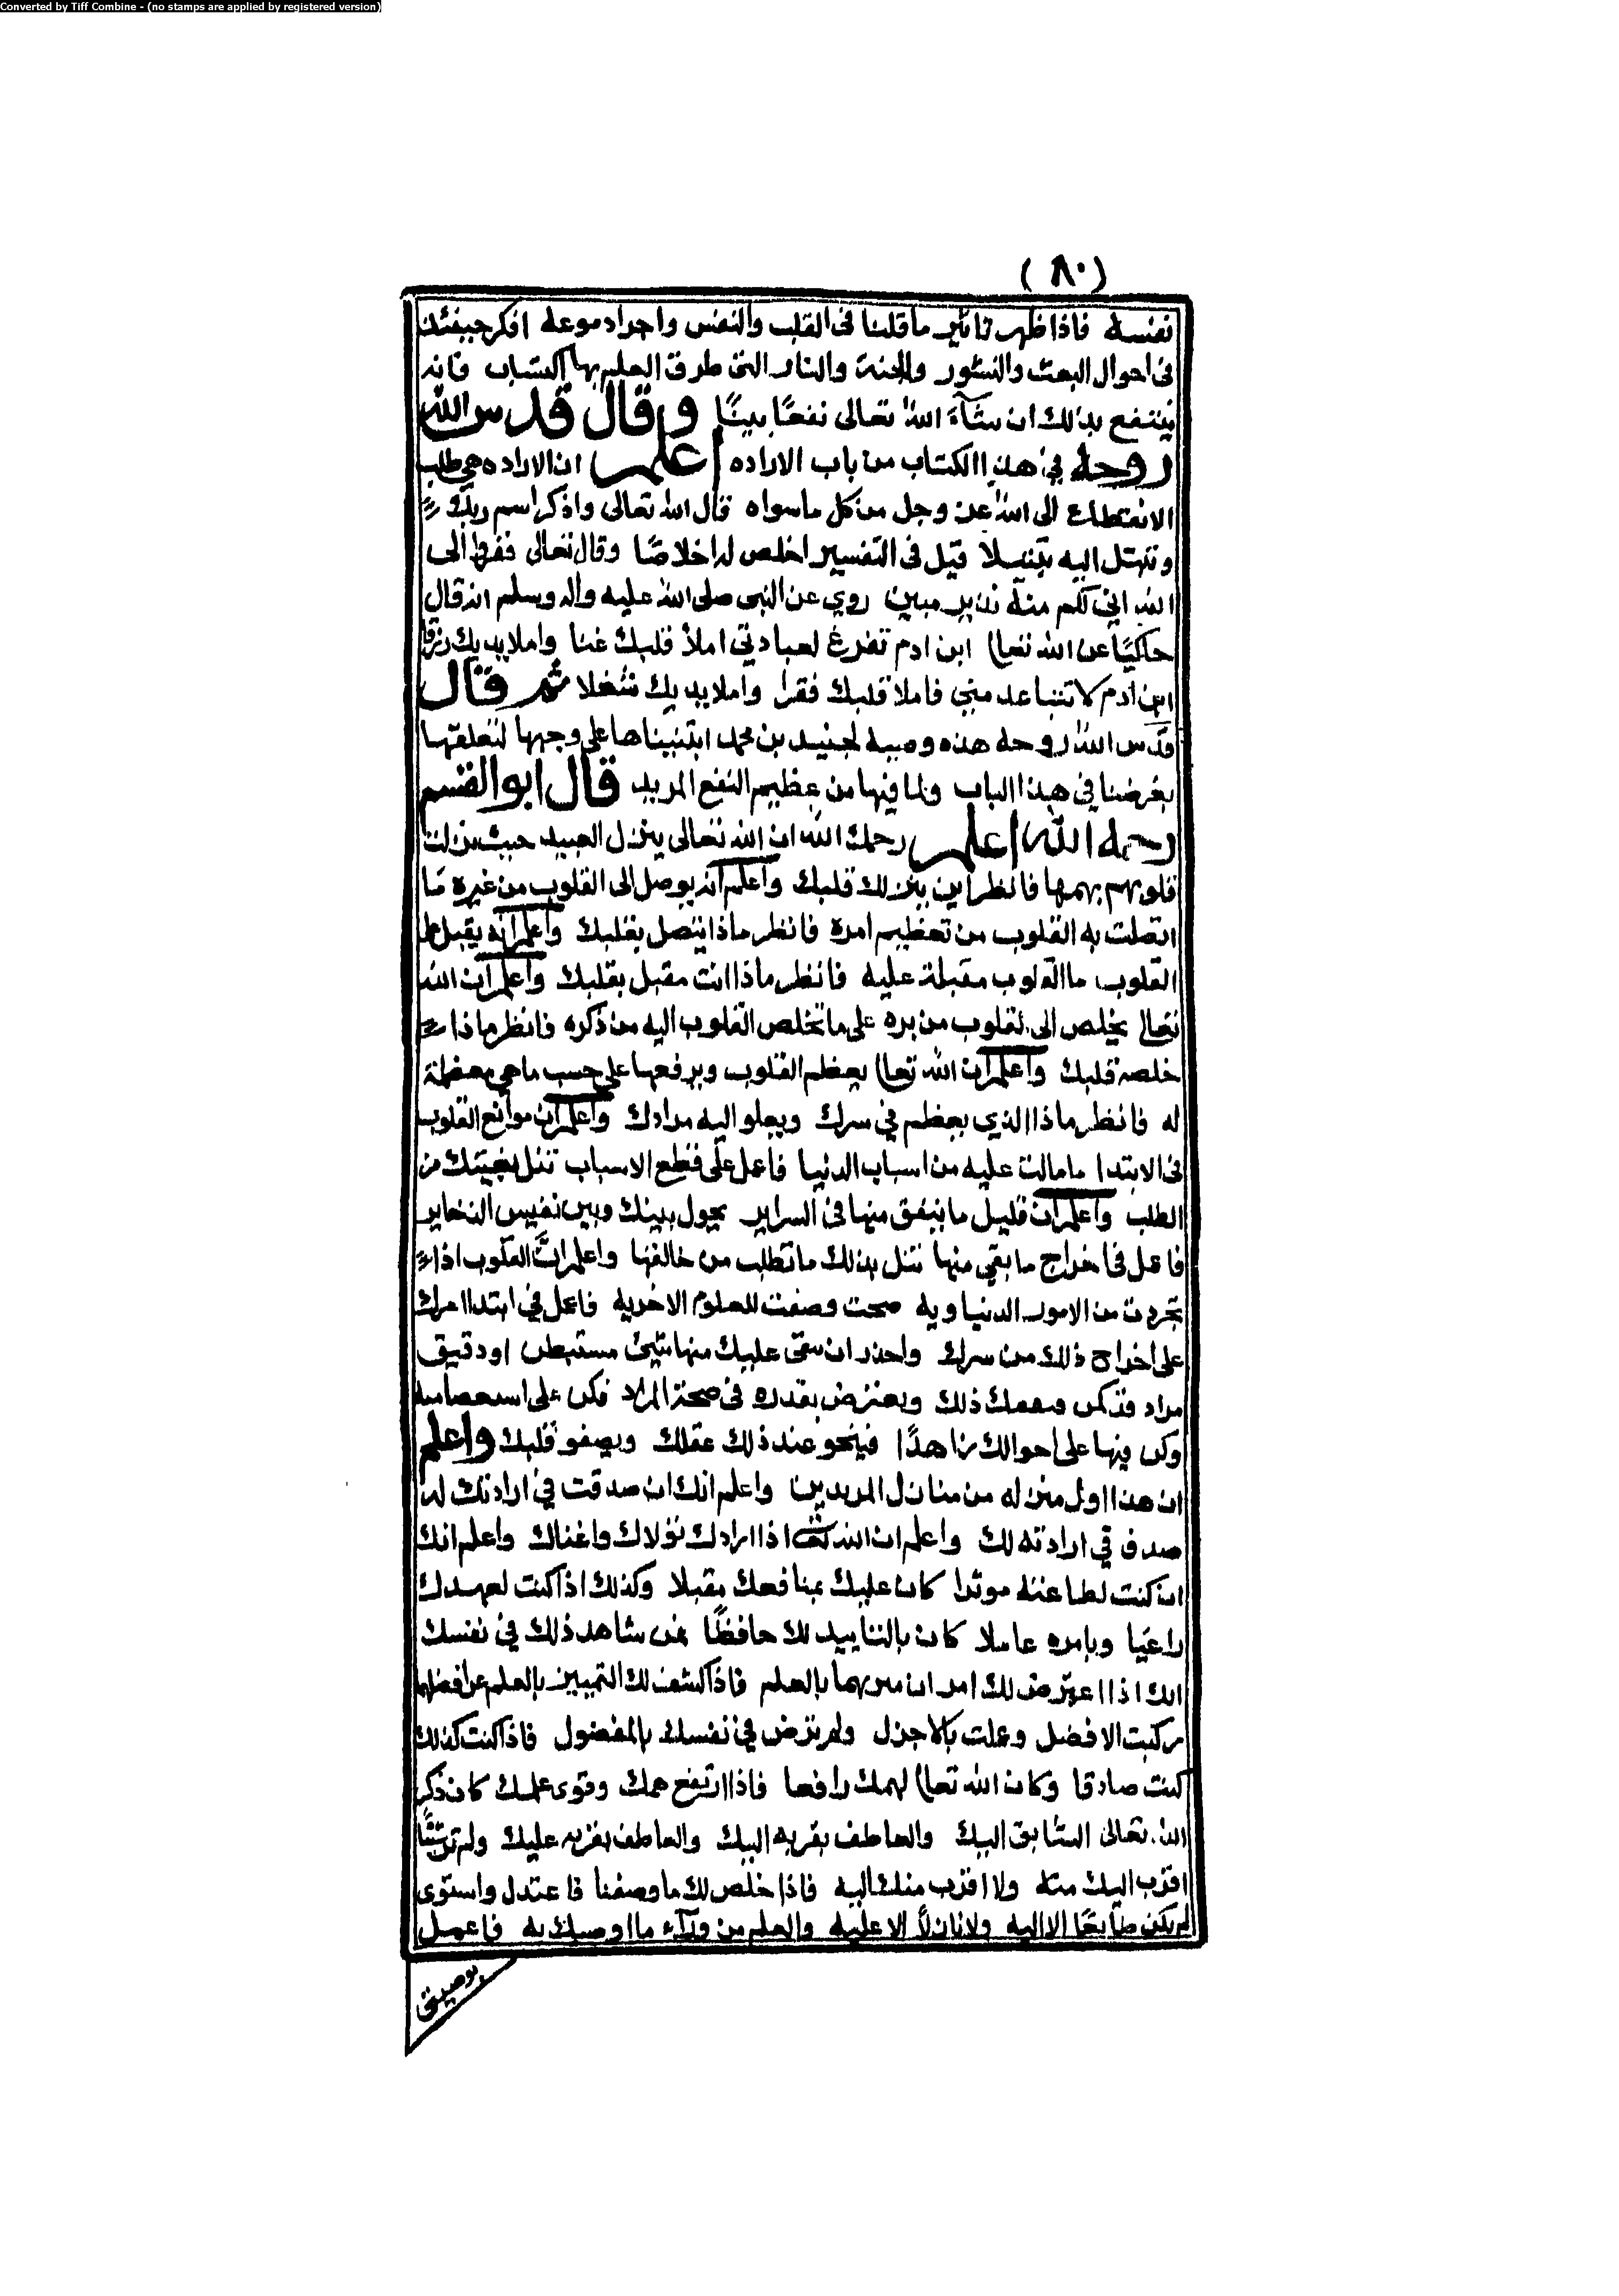 Converted by Tiff Combine - (no stamps are applied by registered version)
(٨٠)
نفسه فاذا ظهر تاثير ما قلنا فى القلب والنفس واجراد موعه افكر حينئذ
فى احوال البعث والنشور والجنة والنار التى طرق العلم بها الكتاب فانه
ينتفع بذلك ان شآء الله تعالى نفعًا بينًا وقال قدس الله
روحه في هذا الكتاب من باب الاراده اعلم ان الاراده هي طلب
الانقطاع الى الله عز وجل من كل ما سواه قال الله تعالى واذكر اسم ربك
وتبتل اليه تبتيلا قيل فى التفسير اخلص له اخلاصًا وقال تعالى ففروا الى
الله اني لكم منه نذير مبين روي عن النبى صلى الله عليه واله وسلم انه قال
حاكيًا عن الله تعالى ابن ادم تفرغ لعبادتي املأ قلبك غنا واملا يديك رزقا
ابن ادم لا تتباعد مني فاملا قلبك فقرا واملا يديك شغلا ثم قال
قدس الله روحه هذه وصية لجنيد بن محمد ابتنيناها على وجهها لتعلقها
بغرضنا في هذا الباب ولما فيها من عظيم النفع المريد قال ابو القسم
رحمه الله اعلم رحمك الله ان الله تعالى ينزل العبيد حيث نزلت
قلوبهم بهمها فانظر اين ينزلك قلبك واعلم انه يوصل الى القلوب من غيره ما
اتصلت به القلوب من تعظيم امره فانظر ماذا يتصل بقلبك واعلم انه يقبل على
القلوب ما القلوب مقبلة عليه فانظر ماذا انت مقبل بقلبك واعلم ان الله
تعالى يخلص الى القلوب من بره على ما تخلص القلوب اليه من ذكره فانظر ماذا
خلصه قلبك واعلم ان الله تعالى يعظم القلوب ويرفعها على حسب ما هي معظمة
له فانظر ماذا الذي يعظم في سرك ويعلو اليه مرادك واعلم ان موانع القلوب
فى الابتدا ما مالت عليه من اسباب الدنيا فاعمل على قطع الاسباب تنل بغيتك من
الطلب واعلم ان قليل ما ينفق منها فى السراير يحول بينك وبين نفيس الذخاير
فاعمل فى اخراج ما بقي منها تنل بذلك ما تطلب من خالقها واعلم انَّ القلوب اذا
تجردت من الامور الدنياويه صحت وصفت للعلوم الاخريه فاعمل في ابتدا امرك
على اخراج ذلك من سرك واحذر ان يبقى عليك منها شيئ مستبطن او دقيق
مراد ذلك ويعترض بقدره فى صحة المراد فكن على
وكن فيها على احوالك زاهدًا فينحو عند ذلك عقلك ويصفو قلبك واعلم
ان هذا اول منزله من منازل المريدين واعلم انك ان صدقت في ارادتك له
صدق في ارادته لك واعلم ان الله تعالى اذا ارادك تولاك واغناك واعلم انك
ان كنت لطاعته موثرا كان عليك بمنافعك مقبلا وكذلك اذا كنت لعهدك
راعيا وبامره عاملا كان بالتاييد لك حافظًا فمن شاهد ذلك في نفسك
انك اذا اعترض لك امران بالعلم فاذا كشف لك التمييز بالعلم عن افضلهما
ركبت الافضل وعملت بالاجزل ولم ترض في نفسك بالمفضول فاذا كنت كذلك
كنت صادقا وكان الله تعالى لهمك رافعا فاذا ارتفع همك وقوى عملك كان ذكر
الله تعالى السابق اليك والعاطف بقربه اليك والعاطف عليك ولم تر شيًّا
اقرب اليك منه ولا اقرب منك اليه فاذا خلص لك ما وصفنا فاعتدل واستوى
لم يكن الا اليه ولا الا عليه والعلم من ورآء ما اوصيك به فاعمل
بوصيتى